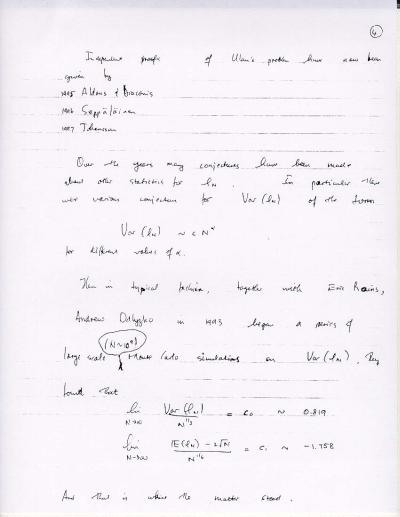 4
Independent proofs of Ulam's problem have now been
given by
1995 Aldous & Diaconis
1996 Seppäläinen
1997 Johansson
Over the years many conjectures have been made
about other statistics for l_N. In particular there
were various conjectures for Var(l_N) of the form
Var(l_N) ~ c N^α
for different values of α.
Then in typical fashion, together with Eric Rains,
Andrew Odlyzko in 1993 began a series of
(N~10^9)
large scale Monte Carlo simulations on Var(l_N). They
found that
lim N→∞ Var(l_N) / N^{1/3} = c_0 ~ 0.819
lim N→∞ (E(l_N) - 2√N) / N^{1/6} = c_1 ~ -1.758
And that is where the matter stood.